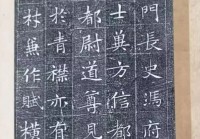 門長史馮府
士冀方信都
都尉道尊見
於青襟亦
材兼作賦橫